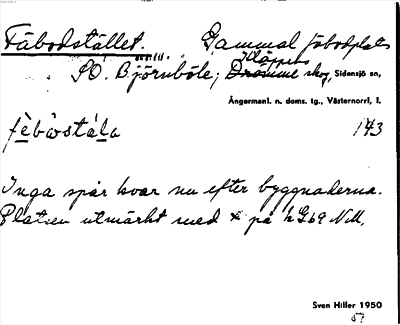 Fäbodstället. Gammal fäbodplats
SO. Björnböle; Drömme skog, Sidensjö sn,
Ångermanl. n. doms. tg., Västernorrl. l.
fèbo̊stá̀la 143
Inga spår kvar nu efter byggnaderna.
Platsen utmärkt med x på k G69 NM.
Sven Hiller 1950